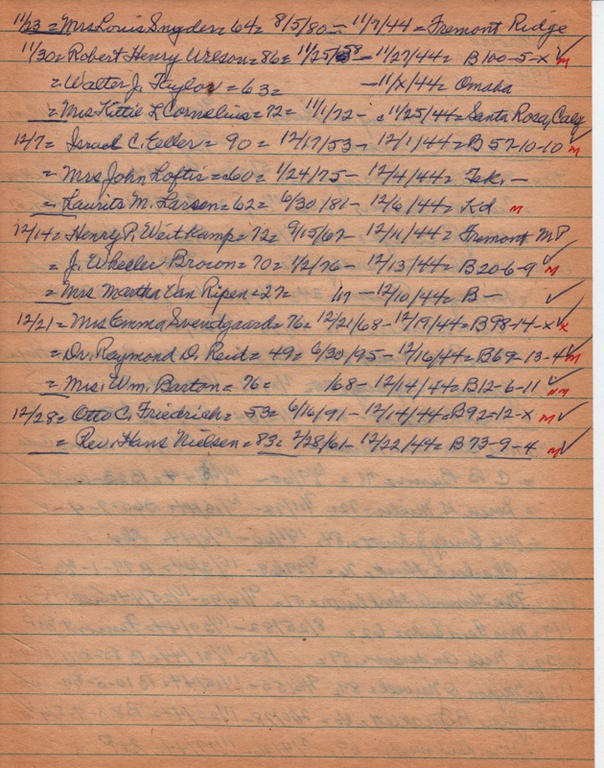 11/23 = Mrs Louis Snyder = 64 = 8/5/80 - 11/7/44 = Fremont Ridge
11/30 = Robert Henry Wilson = 86 = 11/25/58 - 11/27/44 = B100-5-X ✓ M
= Walter J. Taylor = 63 = - 11/X/44 = Omaha
= Mrs Kittie L Cornelius = 72 = 11/1/72 - 11/25/44 = Santa Rosa, Calif
12/7 = Israel C. Eller = 90 = 12/17/53 - 12/1/44 = B 57-10-10 M
= Mrs John Loftis = 60 = 1/24/75 - 12/4/44 = Tek. -
= Laurits M. Larsen = 62 = 6/30/81 - 12/6/44 = Kd M
12/14 = Henry P. Weitkamp = 72 = 9/15/67 - 12/11/44 = Fremont MP
= J. Wheeler Brown = 70 = 1/2/76 - 12/13/44 = B20-6-9 ✓ M
= Mrs Martha Van Ripen = 27 = /17 - 12/10/44 = B - ✓
12/21 = Mrs Emma Svendgaard = 76 = 12/21/68 - 12/19/44 = B98-14-X ✓ X
= Dr. Raymond D. Reid = 49 = 6/30/95 - 12/16/44 = B69-13-4 ✓ M
= Mrs. Wm. Barton = 76 = /68 - 12/14/44 = B12-6-11 ✓ NM
12/28 = Otto C. Friedrich = 53 = 6/16/91 - 12/14/44 = B92=12-X M ✓
= Rev. Hans Nielsen = 83 = 2/28/61 - 12/22/44 = B 73-9-4 M ✓